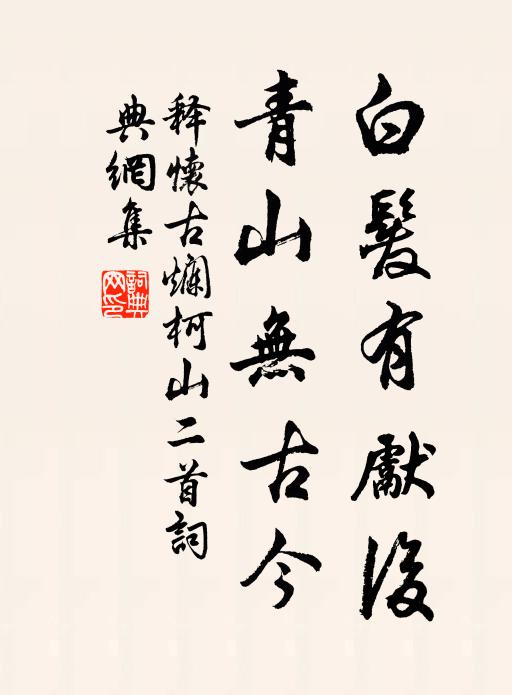 白髮有獻後
青山無古今
释懷古爛柯山二首詞
典網集
詞典
网印